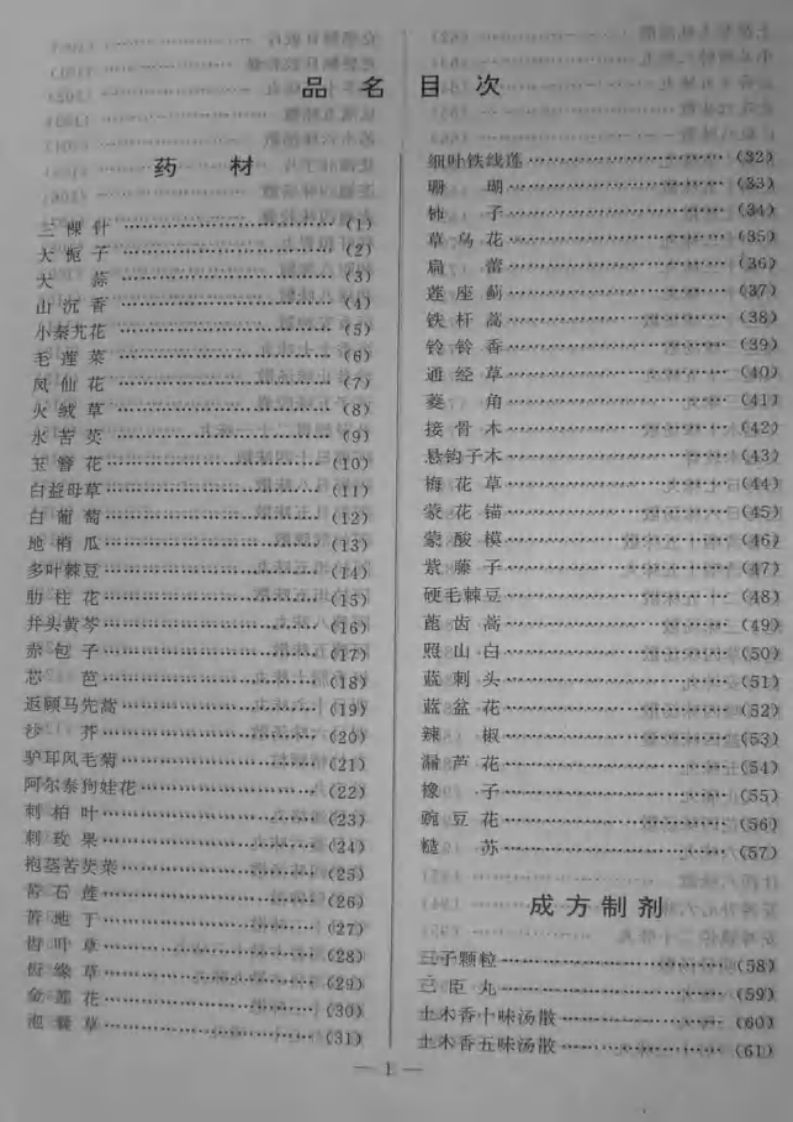 品名目次
药材
三棵针……(1)
大栀子……(2)
大蒜……(3)
山沉香……(4)
小秦艽花……(5)
毛莲菜……(6)
凤仙花……(7)
火绒草……(8)
水苦荬……(9)
玉簪花……(10)
白益母草……(11)
白葡萄……(12)
地梢瓜……(13)
多叶棘豆……(14)
肋柱花……(15)
并头黄芩……(16)
赤包子……(17)
芯芭……(18)
返顾马先蒿……(19)
沙芥……(20)
驴耳风毛菊……(21)
阿尔泰狗娃花……(22)
刺柏叶……(23)
刺玫果……(24)
抱茎苦荬菜……(25)
苦石莲……(26)
苦地丁……(27)
齿叶草……(28)
齿缘草……(29)
金莲花……(30)
泡囊草……(31)
细叶铁线莲……(32)
珊瑚……(33)
柿子……(34)
草乌花……(35)
扁蕾……(36)
莲座蓟……(37)
铁杆蒿……(38)
铃铃香……(39)
通经草……(40)
菱角……(41)
接骨木……(42)
悬钩子木……(43)
梅花草……(44)
蒙花锚……(45)
蒙酸模……(46)
紫藤子……(47)
硬毛棘豆……(48)
蓖齿蒿……(49)
照山白……(50)
蓝刺头……(51)
蓝盆花……(52)
辣椒……(53)
漏芦花……(54)
橡子……(55)
豌豆花……(56)
糙苏……(57)
成方制剂
三子颗粒……(58)
三臣丸……(59)
土木香十味汤散……(60)
土木香五味汤散……(61)
— 1 —